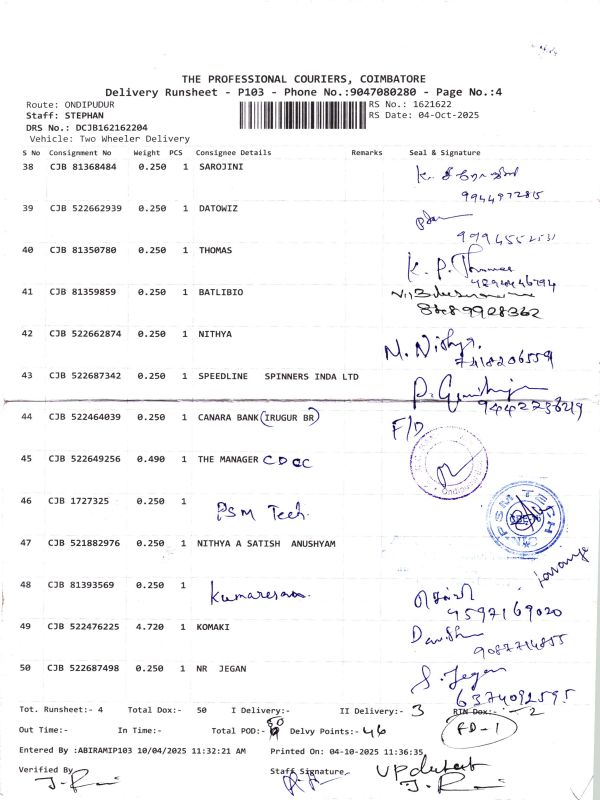 THE PROFESSIONAL COURIERS, COIMBATORE
Delivery Runsheet - P103 - Phone No.:9047080280 - Page No.:4
Route: ONDIPUDUR RS No.: 1621622
Staff: STEPHAN RS Date: 04-Oct-2025
DRS No.: DCJB162162204
Vehicle: Two Wheeler Delivery
S No Consignment No Weight PCS Consignee Details Remarks Seal & Signature
38 CJB 81368484 0.250 1 SAROJINI
39 CJB 522662939 0.250 1 DATOWIZ
40 CJB 81350780 0.250 1 THOMAS K. P. Thomas
41 CJB 81359859 0.250 1 BATLIBIO
8489928362
42 CJB 522662874 0.250 1 NITHYA M. Nithya.
7418206559
43 CJB 522687342 0.250 1 SPEEDLINE SPINNERS INDA LTD
9442236219
44 CJB 522464039 0.250 1 CANARA BANK (IRUGUR BR) F/D
45 CJB 522649256 0.490 1 THE MANAGER CDCC
46 CJB 1727325 0.250 1 PSM Tech.
PSM TECH
47 CJB 521882976 0.250 1 NITHYA A SATISH ANUSHYAM
48 CJB 81393569 0.250 1 Kumaresan.
9597169020
49 CJB 522476225 4.720 1 KOMAKI
9087714855
50 CJB 522687498 0.250 1 NR JEGAN S. Jegan
6374092595
Tot. Runsheet:- 4 Total Dox:- 50 I Delivery:- II Delivery:- 3 RTN Dox:- 2
Out Time:- In Time:- Total POD:- 50 Delvy Points:- 46 FD-1
Entered By :ABIRAMIP103 10/04/2025 11:32:21 AM Printed On: 04-10-2025 11:36:35
Verified By Staff Signature